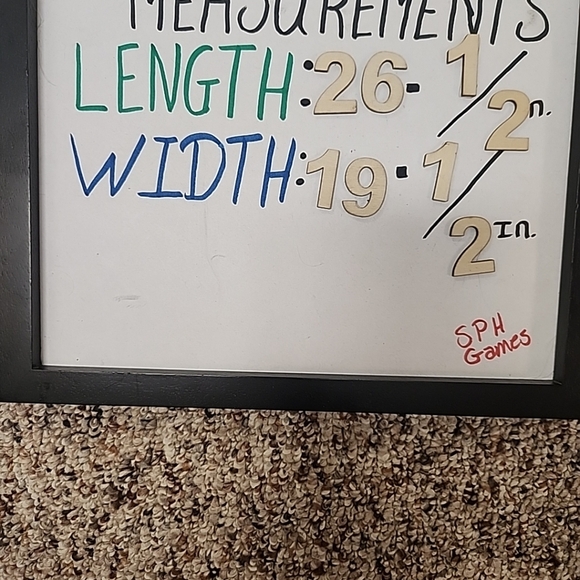 MEASUREMENTS
LENGTH: 26- 1/2 n.
WIDTH: 19 - 1/2 In.
SPH
Games